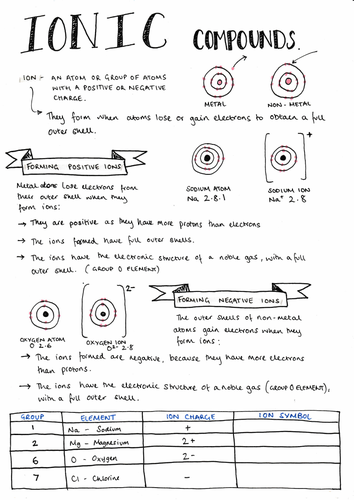 IONIC COMPOUNDS.
ION - AN ATOM OR GROUP OF ATOMS
WITH A POSITIVE OR NEGATIVE
CHARGE.
METAL
NON-METAL
They form when atoms lose or gain electrons to obtain a full
outer shell.
FORMING POSITIVE IONS
Metal atoms lose electrons from
their outer shell when they
form ions:
SODIUM ATOM
Na 2.8.1
+
SODIUM ION
Na+ 2.8
→ They are positive as they have more protons than electrons
→ The ions formed have full outer shells.
→ The ions have the electronic structure of a noble gas, with a full
outer shell. (GROUP 0 ELEMENT)
OXYGEN ATOM
O 2.6
2-
OXYGEN ION
O2- 2.8
FORMING NEGATIVE IONS
The outer shells of non-metal
atoms gain electrons when they
form ions:
→ The ions formed are negative, because they have more electrons
than protons.
→ The ions have the electronic structure of a noble gas (GROUP 0 ELEMENT),
with a full outer shell.
GROUP ELEMENT ION CHARGE ION SYMBOL
1 Na - Sodium +
2 Mg - Magnesium 2+
6 O - Oxygen 2-
7 Cl - Chlorine -